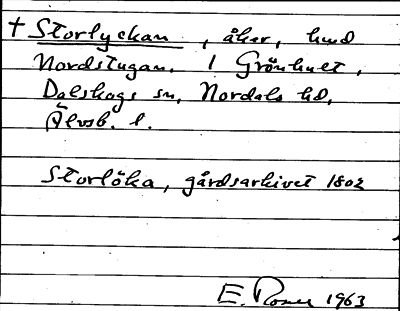 † Storlyckan, åker, hmd
Nordstugan. 1 Grönhult,
Dalskogs sn, Nordals hd,
Älvsb. l.
Storlöka, gårdsarkivet 1802
E. 1963